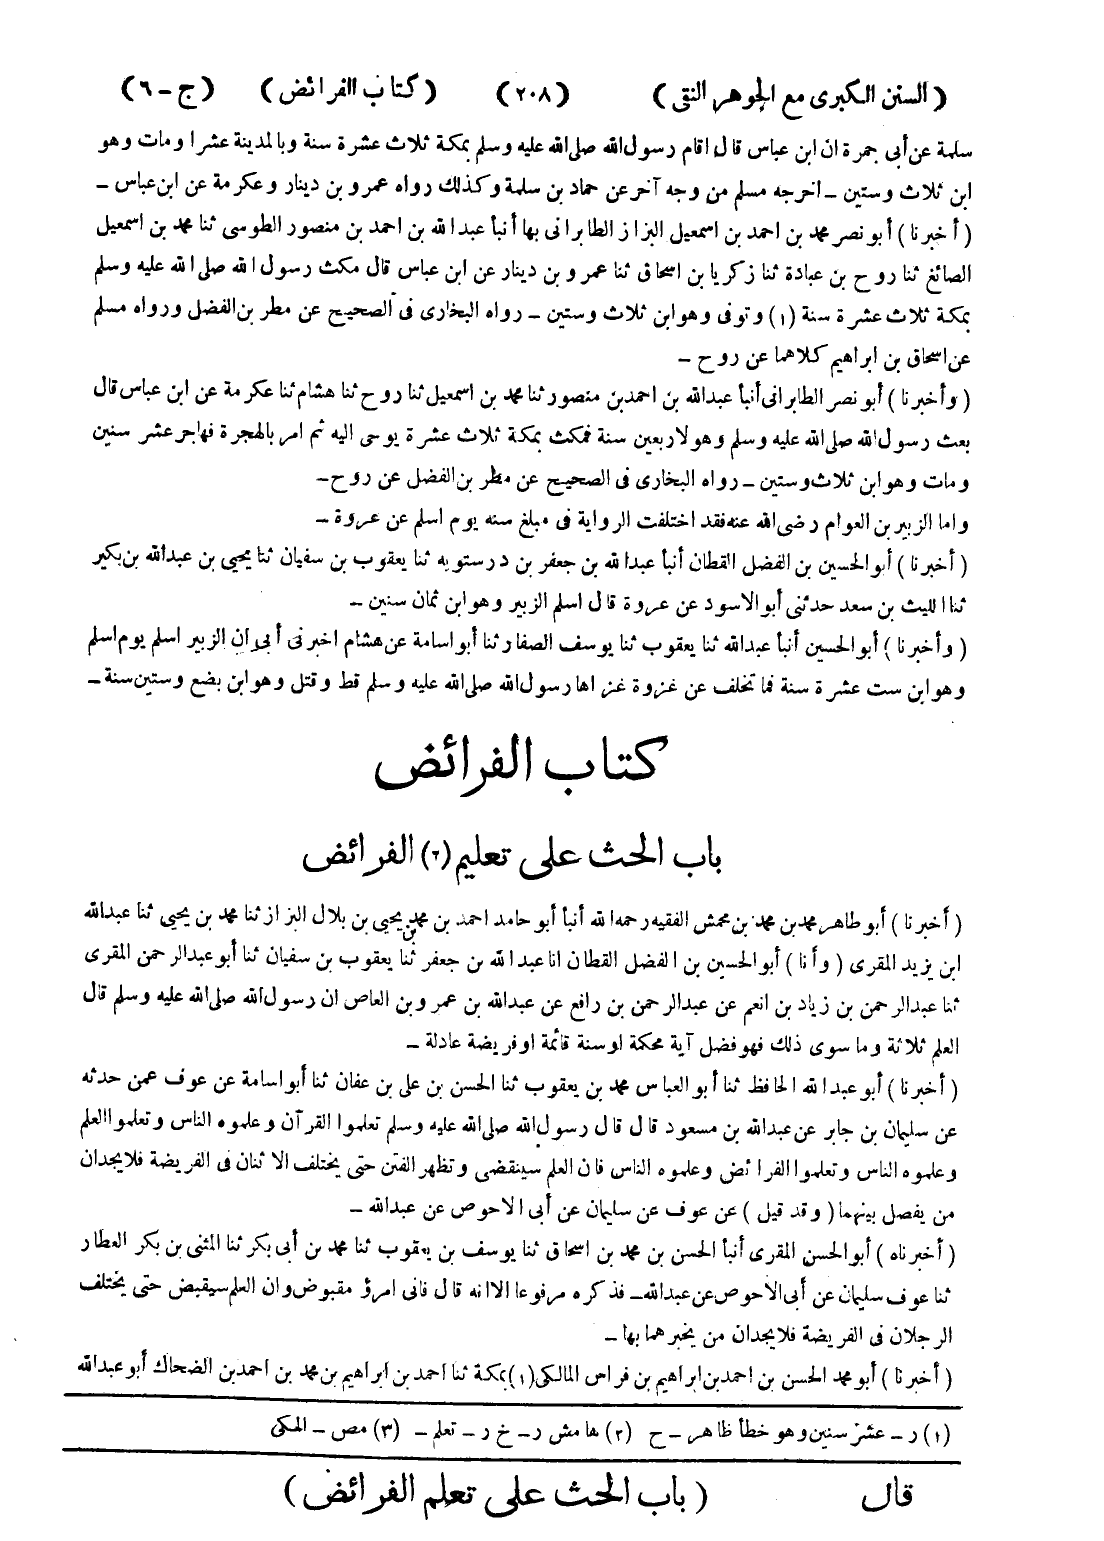 ( السنن الكبرى مع الجوهر النقى ) (٢٠٨) ( كتاب الفرائض ) ( ج – ٦ )
سلمة عن أبى جمرة ان ابن عباس قال اقام رسول الله صلى الله عليه وسلم بمكة ثلاث عشرة سنة وبالمدينة عشرا ومات وهو
ابن ثلاث وستين – اخرجه مسلم من وجه آخر عن حماد بن سلمة وكذلك رواه عمرو بن دينار وعكرمة عن ابن عباس –
( أخبرنا ) أبو نصر محمد بن احمد بن اسمعيل البزاز الطابرانى بها أنبأ عبد الله بن احمد بن منصور الطوسى ثنا محمد بن اسمعيل
الصائغ ثنا روح بن عبادة ثنا زكريا بن اسحاق ثنا عمرو بن دينار عن ابن عباس قال مكث رسول الله صلى الله عليه وسلم
بمكة ثلاث عشرة سنة (١) وتوفى وهو ابن ثلاث وستين – رواه البخارى فى الصحيح عن مطر بن الفضل ورواه مسلم
عن اسحاق بن ابراهيم كلاهما عن روح –
( وأخبرنا ) أبو نصر الطابرانى أنبأ عبد الله بن احمد بن منصور ثنا محمد بن اسمعيل ثنا روح ثنا هشام ثنا عكرمة عن ابن عباس قال
بعث رسول الله صلى الله عليه وسلم وهو لاربعين سنة فمكث بمكة ثلاث عشرة يوحى اليه ثم امر بالهجرة فهاجر عشر سنين
ومات وهو ابن ثلاث وستين – رواه البخارى فى الصحيح عن مطر بن الفضل عن روح –
واما الزبير بن العوام رضى الله عنه فقد اختلفت الرواية فى مبلغ سنه يوم اسلم عن عروة –
( أخبرنا ) أبو الحسين بن الفضل القطان أنبأ عبد الله بن جعفر بن درستويه ثنا يعقوب بن سفيان ثنا يحيى بن عبد الله بن بكير
ثنا الليث بن سعد حدثنى أبو الاسود عن عروة قال اسلم الزبير وهو ابن ثمان سنين –
( وأخبرنا ) أبو الحسين أنبأ عبد الله ثنا يعقوب ثنا يوسف الصفار ثنا أبو اسامة عن هشام اخبرنى أبى ان الزبير اسلم يوم اسلم
وهو ابن ست عشرة سنة فما تخلف عن غزوة غزاها رسول الله صلى الله عليه وسلم قط وقتل وهو ابن بضع وستين سنة –
كتاب الفرائض
باب الحث على تعليم (٢) الفرائض
( أخبرنا ) أبو طاهر محمد بن محمد بن محمش الفقيه رحمه الله أنبأ أبو حامد احمد بن محمد بن يحيى بن بلال البزاز ثنا محمد بن يحيى ثنا عبد الله
ابن يزيد المقرى ( وأنا ) أبو الحسين بن الفضل القطان انا عبد الله بن جعفر ثنا يعقوب بن سفيان ثنا أبو عبد الرحمن المقرى
ثنا عبد الرحمن بن زياد بن انعم عن عبد الرحمن بن رافع عن عبد الله بن عمرو بن العاص ان رسول الله صلى الله عليه وسلم قال
العلم ثلاثة وما سوى ذلك فهو فضل آية محكمة او سنة قائمة او فريضة عادلة –
( أخبرنا ) أبو عبد الله الحافظ ثنا أبو العباس محمد بن يعقوب ثنا الحسن بن على بن عفان ثنا أبو اسامة عن عوف عمن حدثه
عن سليمان بن جابر عن عبد الله بن مسعود قال قال رسول الله صلى الله عليه وسلم تعلموا القرآن وعلموه الناس وتعلموا العلم
وعلموه الناس وتعلموا الفرائض وعلموه الناس فان العلم سينقضى وتظهر الفتن حتى يختلف الاثنان فى الفريضة فلا يجدان
من يفصل بينهما ( وقد قيل ) عن عوف عن سليمان عن أبى الاحوص عن عبد الله –
( أخبرناه ) أبو الحسن المقرى أنبأ الحسن بن محمد بن اسحاق ثنا يوسف بن يعقوب ثنا محمد بن أبى بكر ثنا المثنى بن بكر العطار
ثنا عوف سليمان عن أبى الاحوص عن عبد الله – فذكره مرفوعا الا انه قال فانى امرؤ مقبوض وان العلم سيقبض حتى يختلف
الرجلان فى الفريضة فلا يجدان من يخبرهما بها –
( أخبرنا ) أبو محمد الحسن بن احمد بن ابراهيم بن فراس المالكى (١) بمكة ثنا احمد بن ابراهيم بن محمد بن احمد بن الضحاك أبو عبد الله
(١) ر – عشر سنين وهو خطأ ظاهر – ح (٢) هامش ر – خ ر – تعلم – (٣) مص – المكى
قال ( باب الحث على تعلم الفرائض )